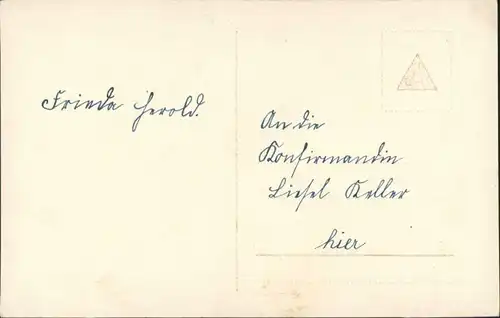 Frieda Herold.
An die
Konfirmandin
Liesel Keller
hier